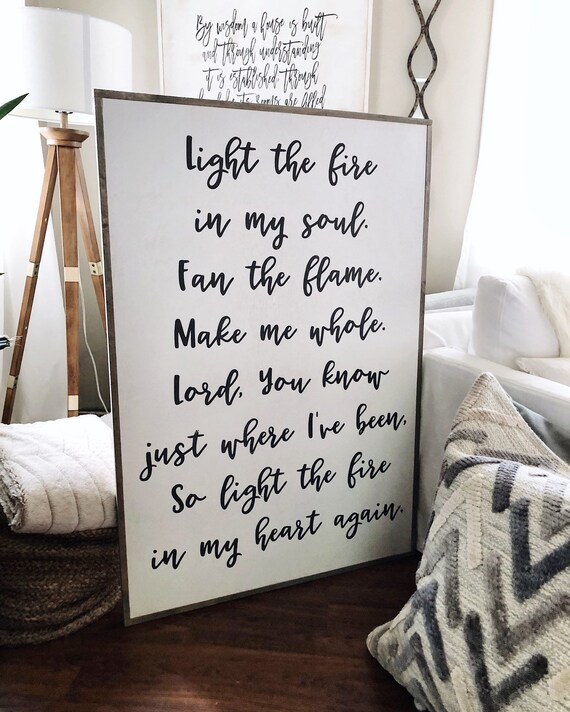 By wisdom a house is built
and through understanding
it is established. through
rooms are filled
Light the fire
in my soul.
Fan the flame.
Make me whole.
Lord, You know
just where I've been,
So light the fire
in my heart again.